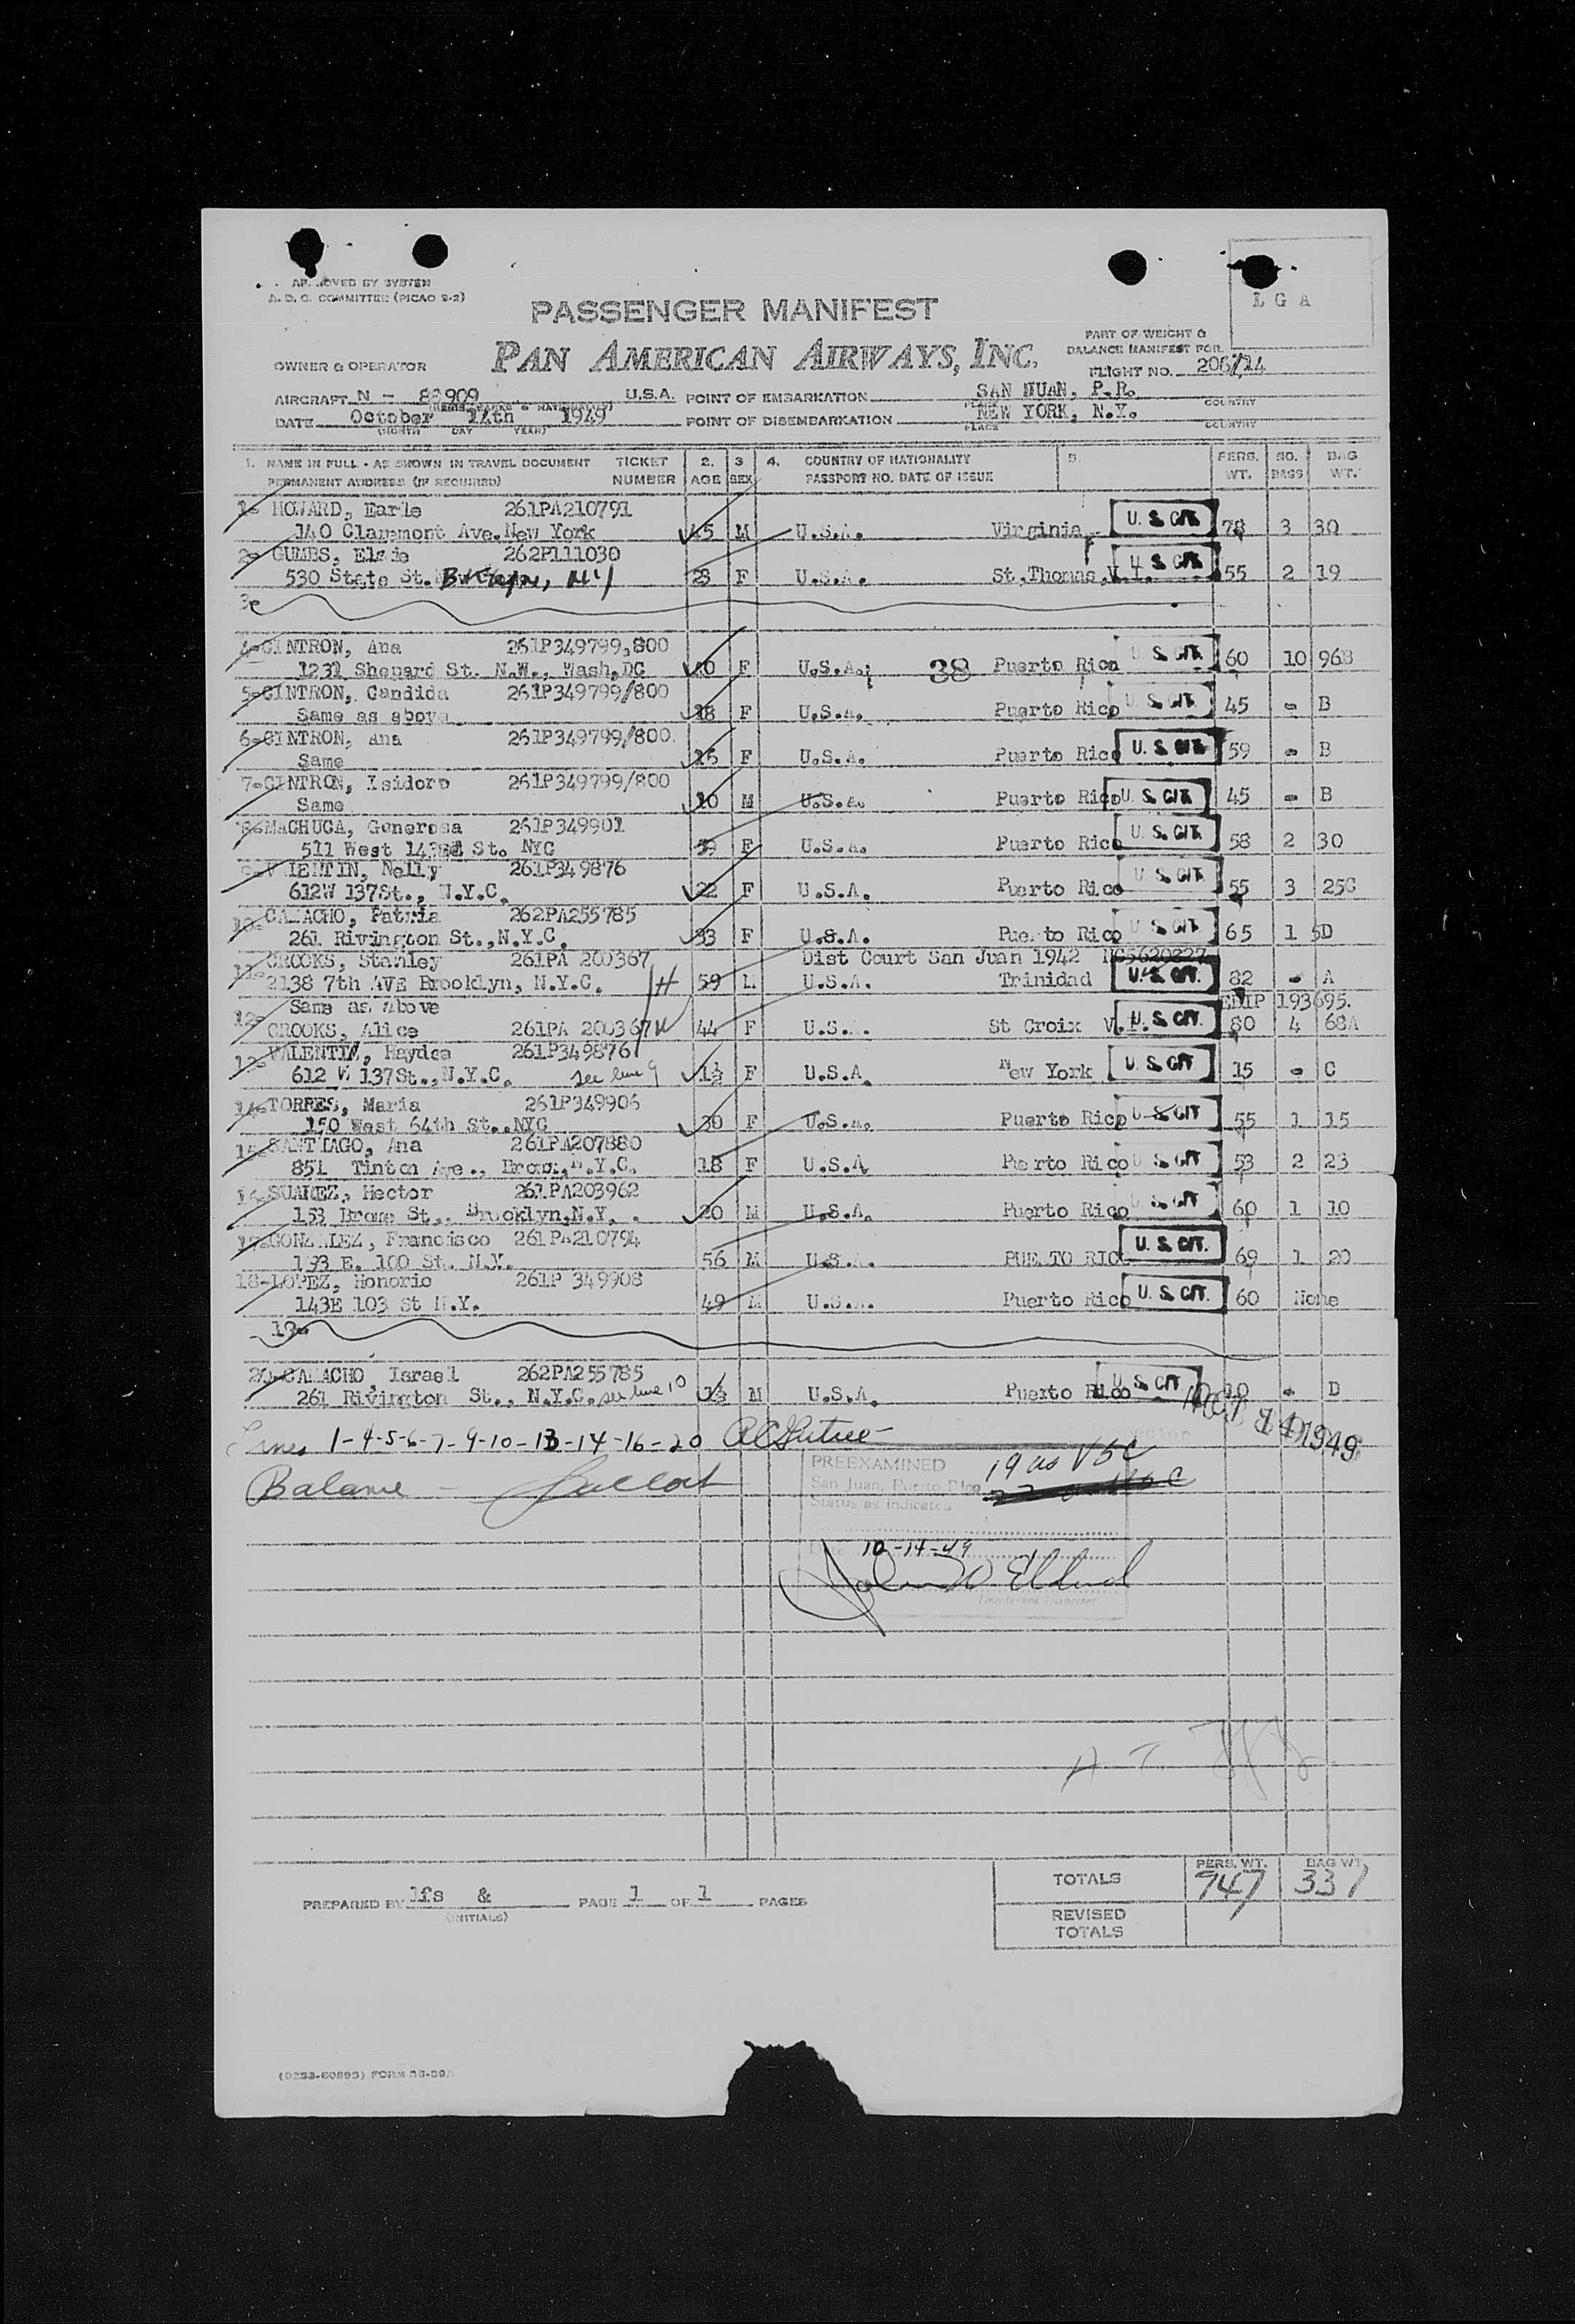 APPROVED BY SYSTEM
A. D. C. COMMITTEE (PICAO 9-2)
L G A
PASSENGER MANIFEST
PART OF WEIGHT &
BALANCE MANIFEST FOR
OWNER & OPERATOR PAN AMERICAN AIRWAYS, INC.
FLIGHT NO. 206/14
AIRCRAFT N - 88909 U.S.A. POINT OF EMBARKATION SAN JUAN, P.R.
PLACE COUNTRY
DATE October 14th 1949 POINT OF DISEMBARKATION NEW YORK, N.Y.
(MONTH DAY YEAR) PLACE COUNTRY
1. NAME IN FULL - AS SHOWN IN TRAVEL DOCUMENT TICKET 2. 3 4. COUNTRY OF NATIONALITY 5. PERS. NO. BAG
PERMANENT ADDRESS (IF REQUIRED) NUMBER AGE SEX PASSPORT NO. DATE OF ISSUE WT. BAGS WT.
1- HOWARD, Earle 261PA210791
140 Claremont Ave. New York 45 M U.S.A. Virginia U. S. CIT. 78 3 30
2- GUMBS, Elsie 262P111030
530 State St. Brooklyn, NY 23 F U.S.A. St. Thomas, V.I. U. S. CIT. 55 2 19
3-
4-CINTRON, Ana 261P349799,800
1231 Shepard St. N.W., Wash,DC 40 F U.S.A. 38 Puerto Rico U. S. CIT. 60 10 96B
5-CINTRON, Candida 261P349799/800
Same as above 18 F U.S.A. Puerto Rico U. S. CIT. 45 - B
6-CINTRON, Ana 261P349799/800
Same 15 F U.S.A. Puerto Rico U. S. CIT. 59 - B
7-CINTRON, Isidoro 261P349799/800
Same 10 M U.S.A. Puerto Rico U. S. CIT. 45 - B
8-MACHUCA, Generosa 261P349901
511 West St. NYC 59 F U.S.A. Puerto Rico U. S. CIT. 58 2 30
9-VALENTIN, Nelly 261P349876
612W 137St., N.Y.C. 22 F U.S.A. Puerto Rico U. S. CIT. 55 3 25C
10-CAMACHO, Patria 262PA255785
261 Rivington St.,N.Y.C. 33 F U.S.A. Puerto Rico U. S. CIT. 65 1 5D
CROOKS, Stanley 261PA 200367 Dist Court San Juan 1942 NC5620227
11- 2138 7th AVE Brooklyn, N.Y.C. 59 M U.S.A. Trinidad U. S. CIT. 82 - A
Same as Above 193695.
12- CROOKS, Alice 261PA 200367 44 F U.S.A. St Croix V.I. U. S. CIT. 80 4 68A
13-VALENTIN, Haydee 261P349876
612 W 137St.,N.Y.C. see line 9 1½ F U.S.A. New York U. S. CIT. 15 - C
14-TORRES, Maria 261P349906
150 West 64th St. NYC 30 F U.S.A. Puerto Rico U. S. CIT. 55 1 15
15-SANTIAGO, Ana 261PA207880
851 Tinton Ave., Bronx, N.Y.C. 18 F U.S.A. Puerto Rico U. S. CIT. 53 2 23
16-SUAREZ, Hector 261PA203962
153 Brome St., Brooklyn,N.Y. 20 M U.S.A. Puerto Rico U. S. CIT. 60 1 10
17-GONZALEZ, Francisco 261PA210794
193 E. 100 St. N.Y. 56 M U.S.A. PUERTO RICO U. S. CIT. 69 1 20
18-LOPEZ, Honorio 261P 349908
143E 103 St N.Y. 49 M U.S.A. Puerto Rico U. S. CIT. 60 None
19-
20-CAMACHO, Israel 262PA255785
261 Rivington St., N.Y.C. see line 10 1½ M U.S.A. Puerto Rico U. S. CIT. 10 - D
OCT 14 1949
Lines 1-4-5-6-7-9-10-13-14-16-20
PREEXAMINED 19 as USC
Balance
San Juan, Puerto Rico
Status as indicated
Date 10-14-49
Immigrant Inspector
TOTALS PERS. WT. 947 BAG WT. 337
PREPARED BY lfs & PAGE 1 OF 1 PAGES
(INITIALS)
REVISED
TOTALS